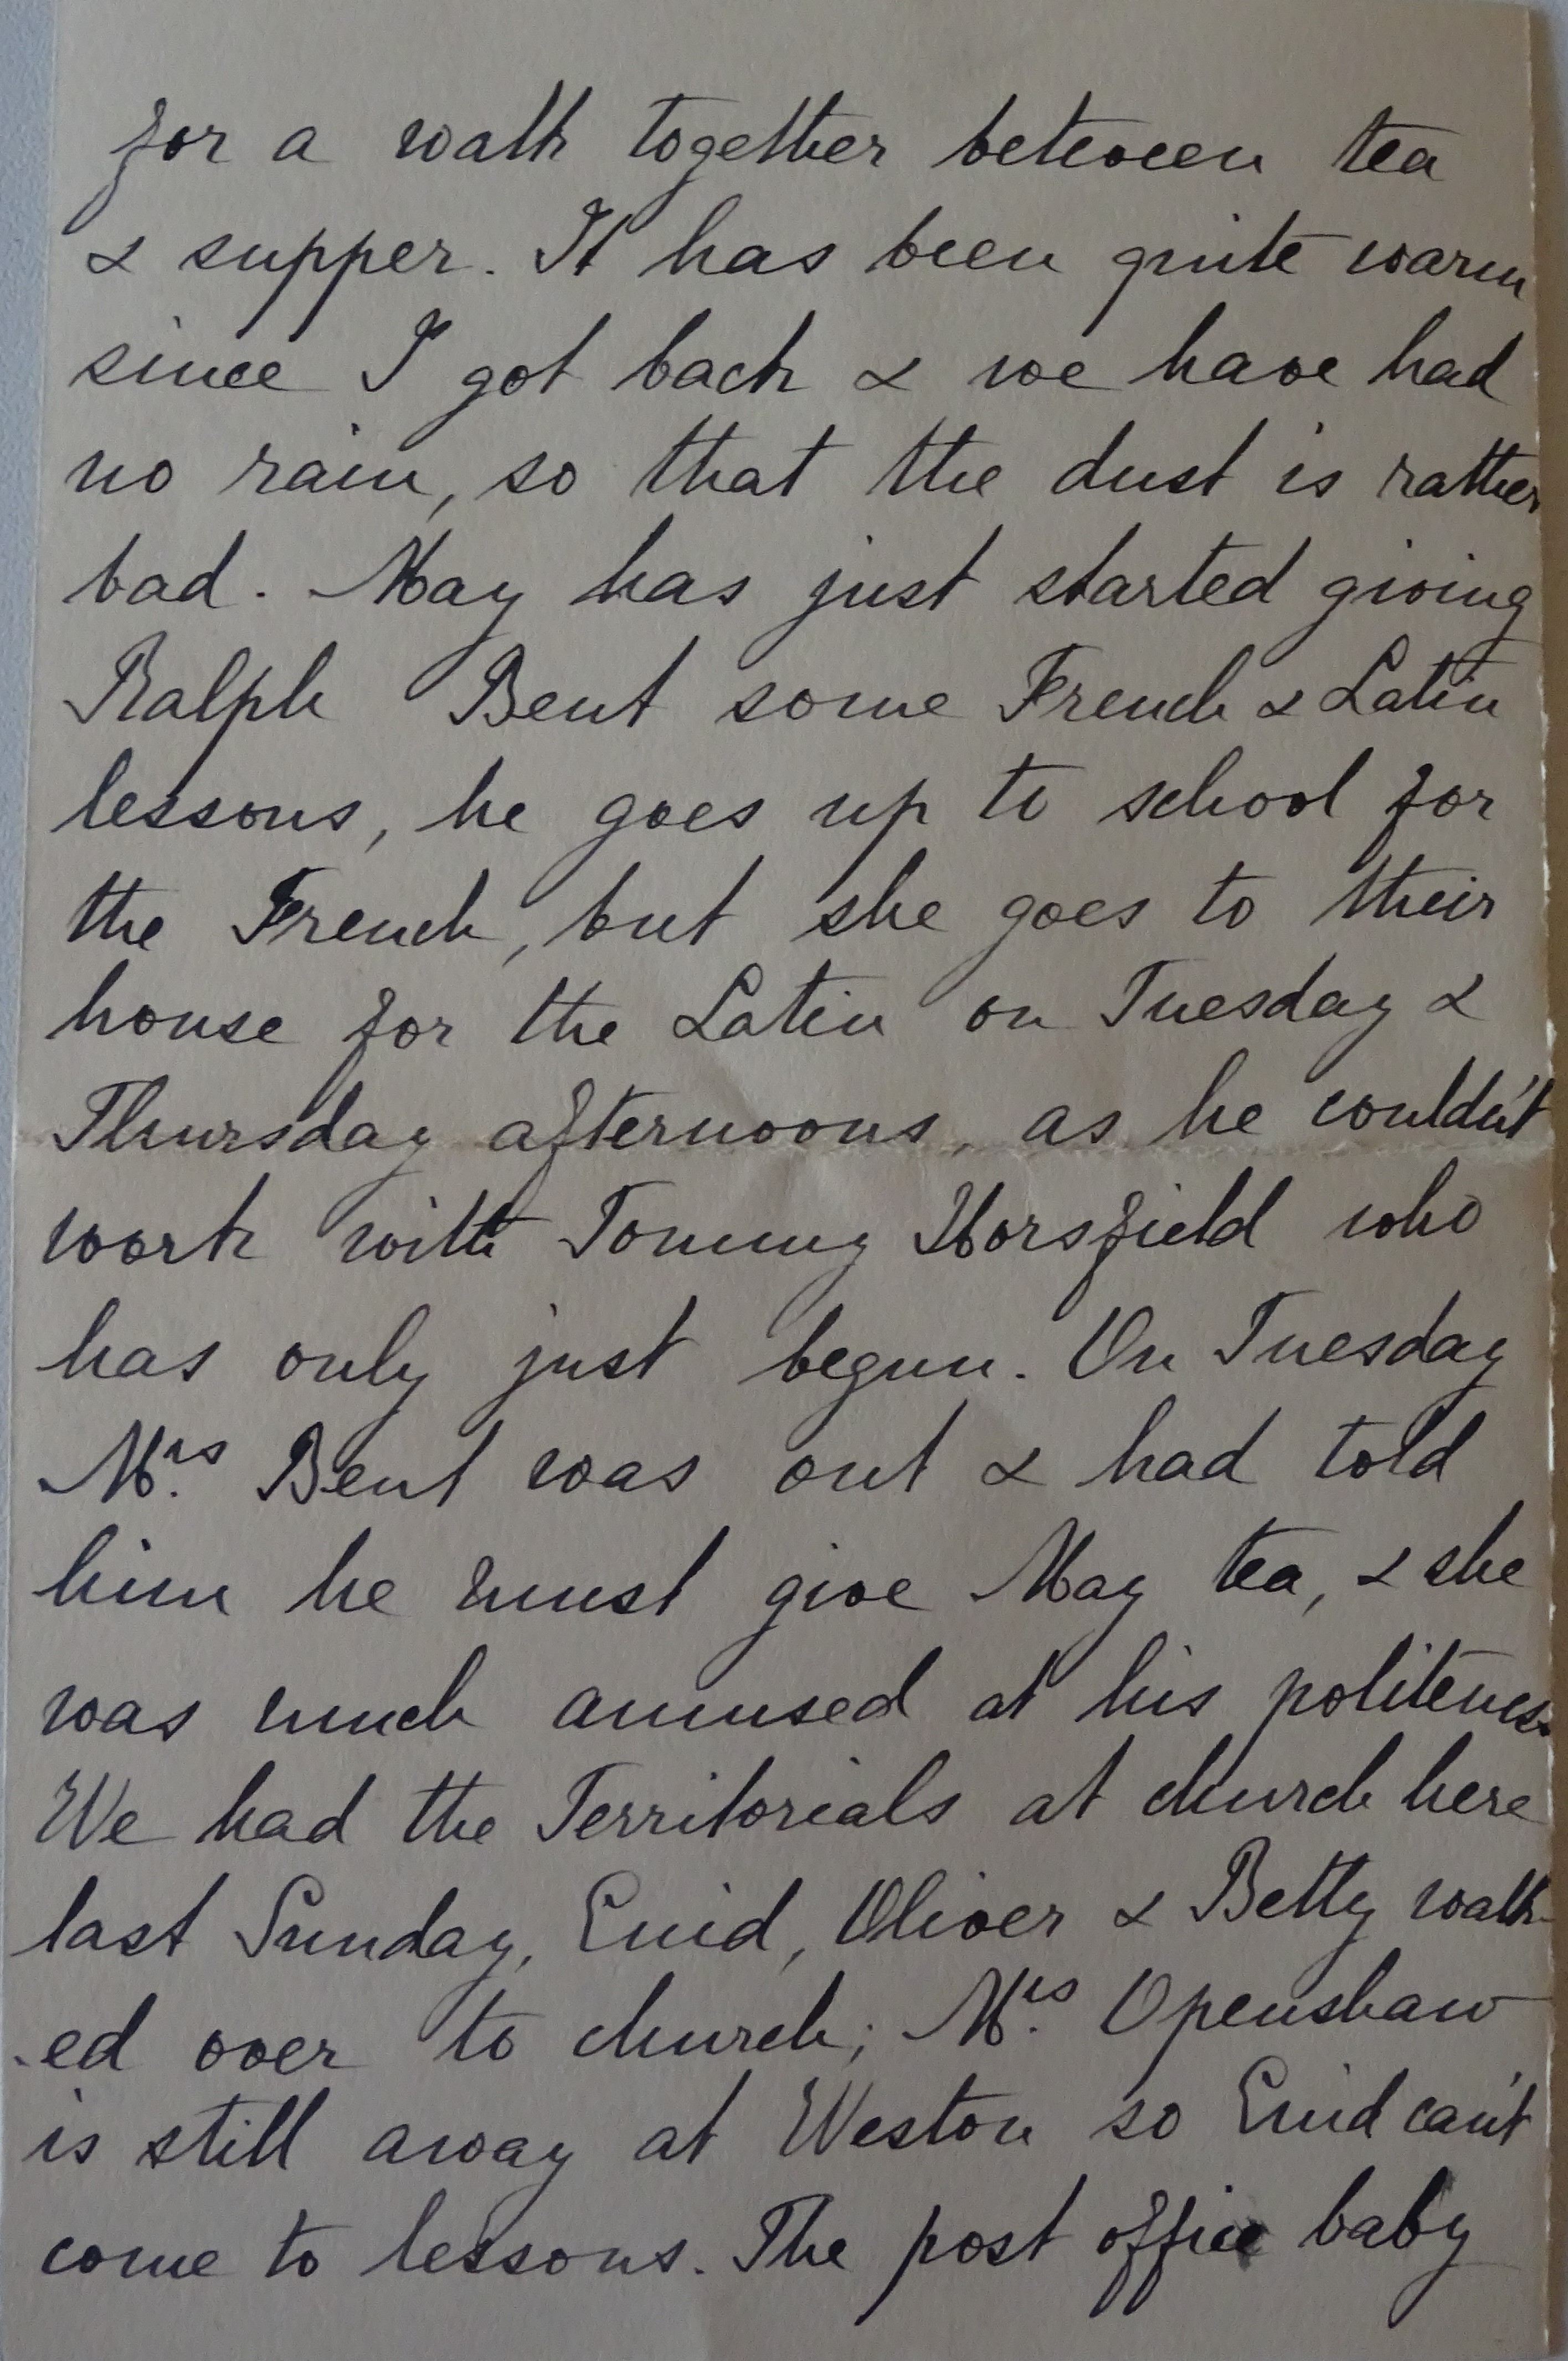 for a walk together between tea
& supper. It has been quite warm
since I got back & we have had
no rain, so that the dust is rather
bad. May has just started giving
Ralph Bent some French & Latin
lessons, he goes up to school for
the French, but she goes to their
house for the Latin on Tuesday &
Thursday afternoons, as he couldn't
work with Tommy Horsfield who
has only just begun. On Tuesday
Mrs. Bent was out & had told
him he must give May tea, & she
was much amused at his politeness.
We had the Territorials at church here
last Sunday, Enid, Oliver & Betty walk-
-ed over to church; Mrs. Openshaw
is still away at Weston so Enid can't
come to lessons. The post office baby